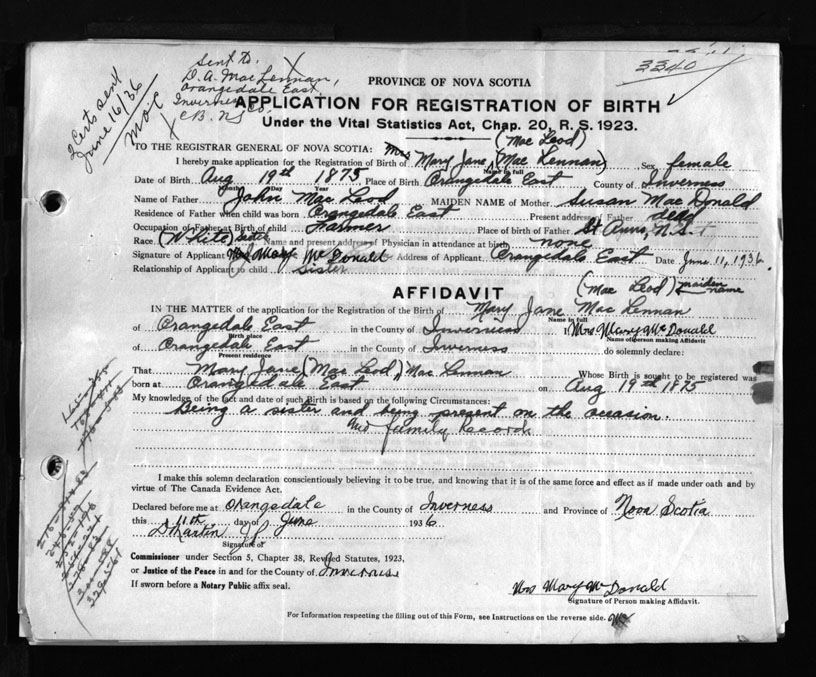 3340
Sent to
D. A. MacLennan,
Orangedale East
Inverness Co,
C.B. N.S
2 Certs sent
June 16/36
PROVINCE OF NOVA SCOTIA
APPLICATION FOR REGISTRATION OF BIRTH
Under the Vital Statistics Act, Chap. 20, R. S. 1923.
(Mac Leod)
TO THE REGISTRAR GENERAL OF NOVA SCOTIA:
I hereby make application for the Registration of Birth of Mrs Mary Jane, (Mac Lennan) Sex female
Name in full
Date of Birth Aug 19th 1875 Place of Birth Orangedale East County of Inverness
Month Day Year
Name of Father John Mac Leod MAIDEN NAME of Mother Susan Mac Donald
Residence of Father when child was born Orangedale East Present address of Father dead
Occupation of Father at Birth of child Farmer Place of birth of Father St Anns, N.S.
Race. (White) Scotch Name and present address of Physician in attendance at birth none
Signature of Applicant Mrs Mary McDonald Address of Applicant Orangedale East Date June 11, 1936
Relationship of Applicant to child Sister
AFFIDAVIT
(Mac Leod) maiden name
IN THE MATTER of the application for the Registration of the Birth of Mary Jane Mac Lennan
Name in full
of Orangedale East in the County of Inverness I, Mrs Mary McDonald
Birth place Name of person making Affidavit
of Orangedale East in the County of Inverness do solemnly declare:
Present residence
That Mary Jane, (Mac Leod), Mac Lennan Whose Birth is sought to be registered was
born at Orangedale East on Aug 19th 1875
My knowledge of the fact and date of such Birth is based on the following Circumstances:
Being a sister and being present on the occasion.
and family Records
I make this solemn declaration conscientiously believing it to be true, and knowing that it is of the same force and effect as if made under oath and by
virtue of The Canada Evidence Act.
Declared before me at Orangedale in the County of Inverness and Province of Nova Scotia
this 11th day of June 1936
D Martin J.P.
Signature of
Commissioner under Section 5, Chapter 38, Revised Statutes, 1923,
or Justice of the Peace in and for the County of Inverness
If sworn before a Notary Public affix seal.
Mrs Mary McDonald
Signature of Person making Affidavit.
For Information respecting the filling out of this Form, see Instructions on the reverse side.